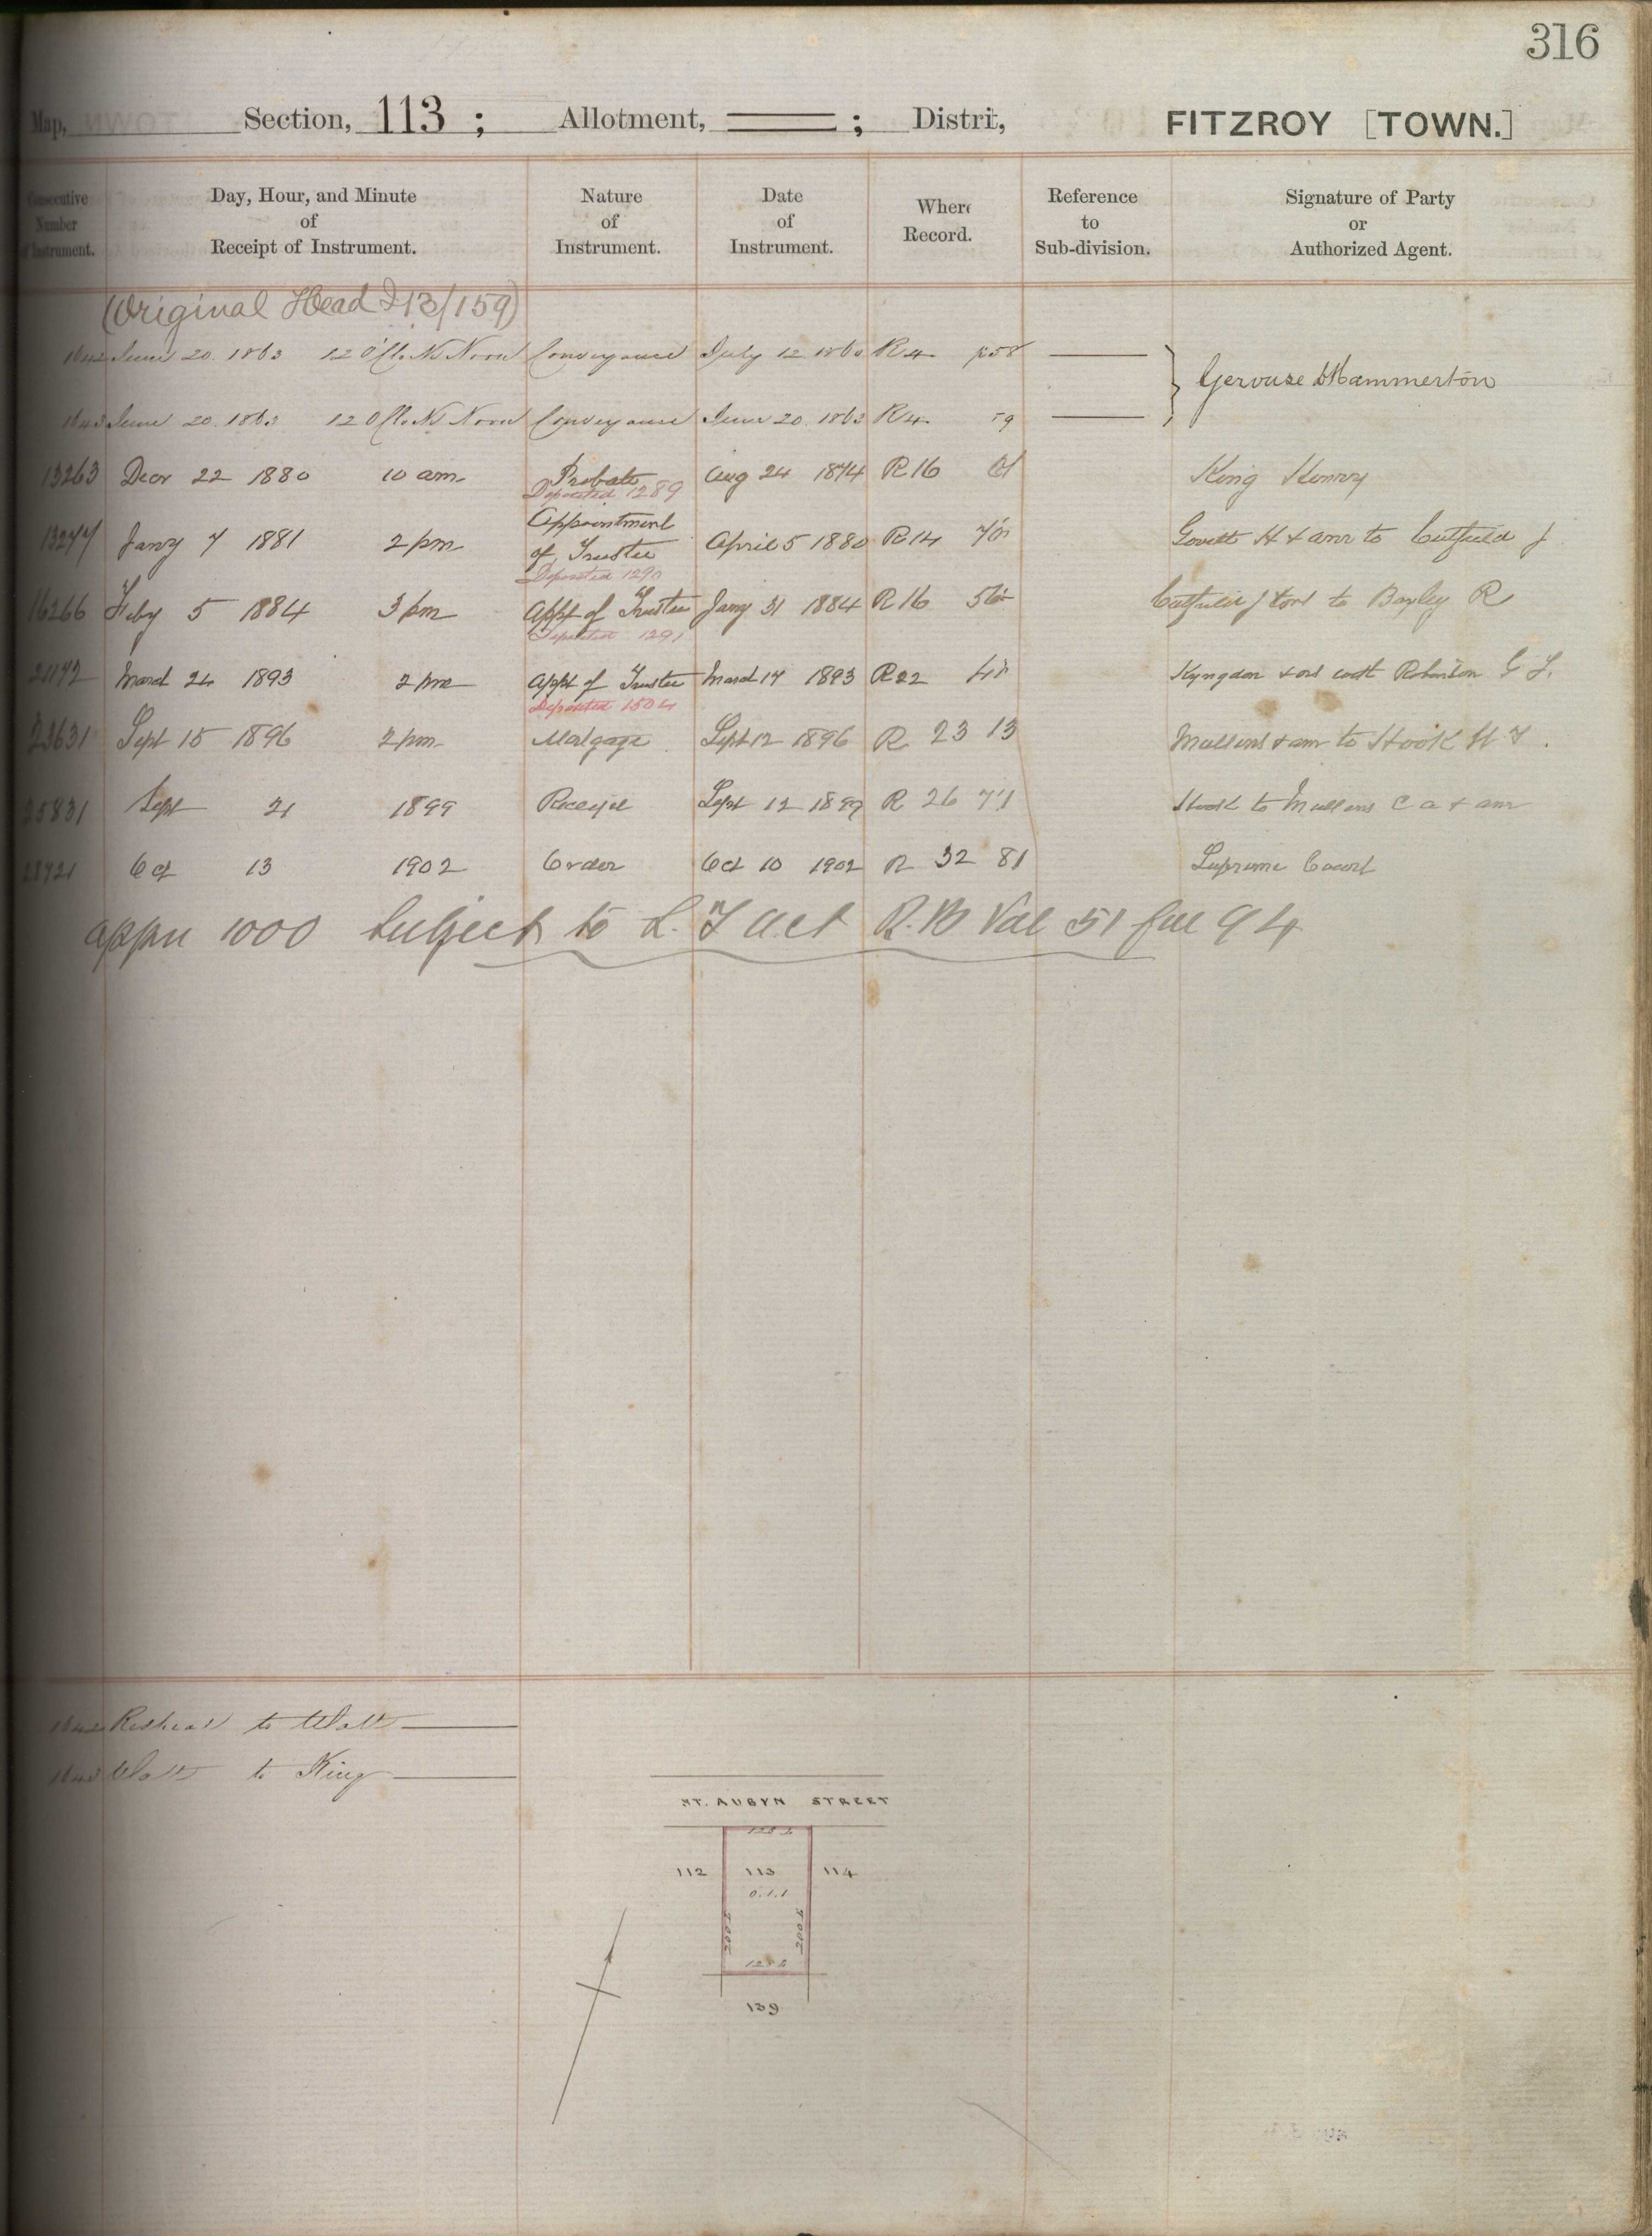 316
Map, Section, 113 ; Allotment, ; Distri:, FITZROY [TOWN.]
Consecutive Number of Instrument.
Day, Hour, and Minute of Receipt of Instrument.
Nature of Instrument.
Date of Instrument.
Where Record.
Reference to Sub-division.
Signature of Party or Authorized Agent.
(Original Head I 13/159)
1642 June 20. 1863 12 O'Clo. Noon Conveyance July 12 1860 R4 p58
Gervase D Hammerton
1643 June 20. 1863 12 O Clo. Noon Conveyance June 20. 1863 R4 59
13263 Decr 22 1880 10 am Probate Aug 24 1874 R16 61 King Henry
Deposited 1289
13277 Jany 7 1881 2 pm Appointment of Trustee April 5 1880 R14 Govett H & anr to Cutfield J
Deposited 1290
16266 Feby 5 1884 3 pm Appt of Trustee Jany 31 1884 R16 Cutfield J & ors to Bayley R
Deposited 1291
March 24 1893 2 pm Appt of Trustee March 17 1893 R22 Kyngdon & ors with Robinson G F.
Deposited 1504
23631 Sept 15 1896 2 pm Mortgage Sept 12 1896 R 23 13 Mullens & anr to Hook H T.
25831 Sept 21 1899 Receipt Sept 12 1899 R 26 Hook to Mullens C A & anr
28721 Oct 13 1902 Order Oct 10 1902 R 32 81 Supreme Court
appn 1000 Subject to L. T Act R.B Vol 51 fol 94
1642 Redhead to Watt
1643 Watt to King
ST. AUBYN STREET
112 113 114
0.1.1
200
200
139